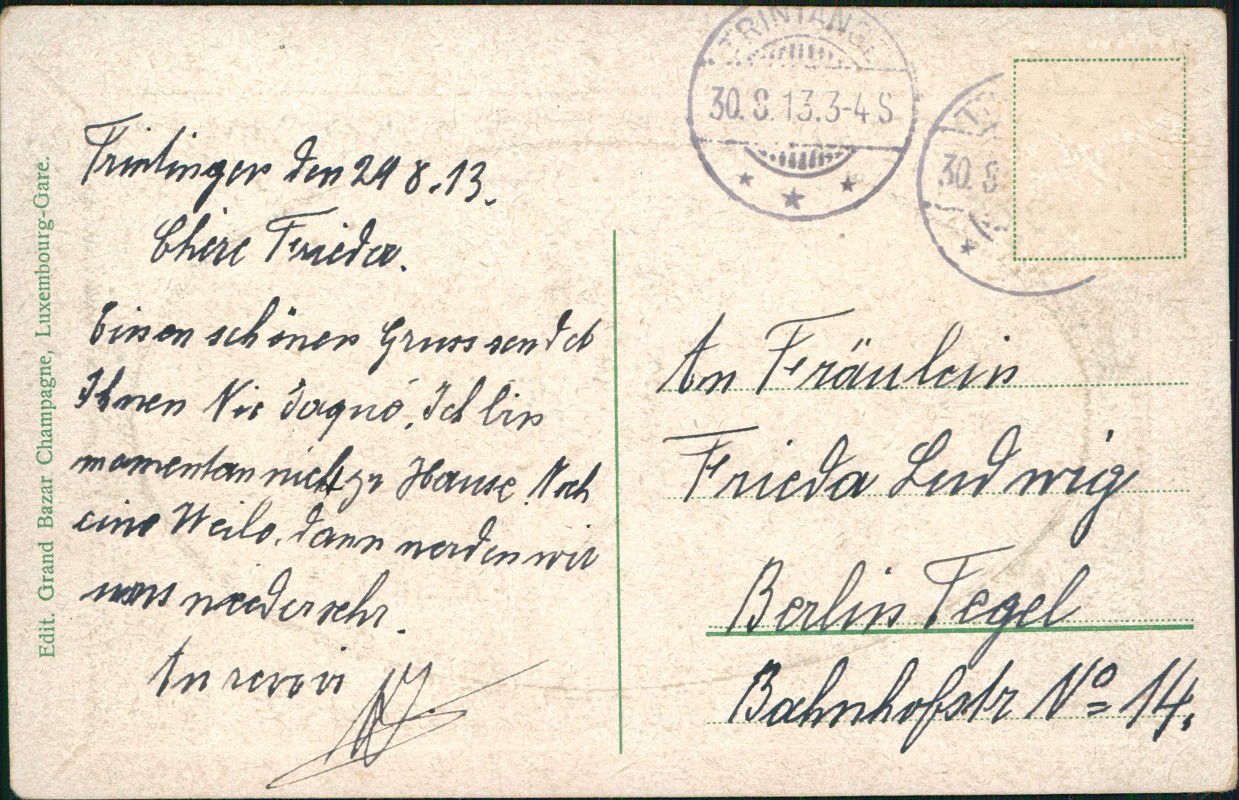 TRINTANGE
30.8.13.3-4S
30.8
Edit. Grand Bazar Champagne, Luxembourg-Gare.
Trintingen den 29 8.13.
Chère Frieda.
Einen schönen Gruss sendet
Ihnen Nic Jaqué, Ich bin
momentan nicht zu Hause Noch
eine Weile, dann werden wir
uns wiedersehr.
Au revoir
An Fräulein
Frieda Ludwig
Berlin Tegel
Bahnhofstr Nº 14.